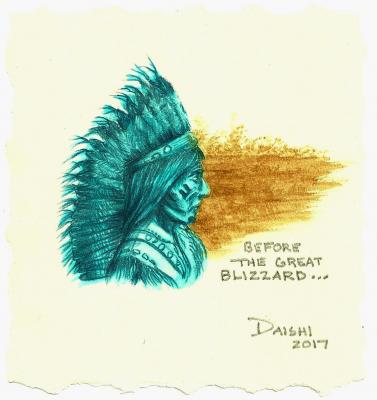 BEFORE
THE GREAT
BLIZZARD...
DAISHI
2017